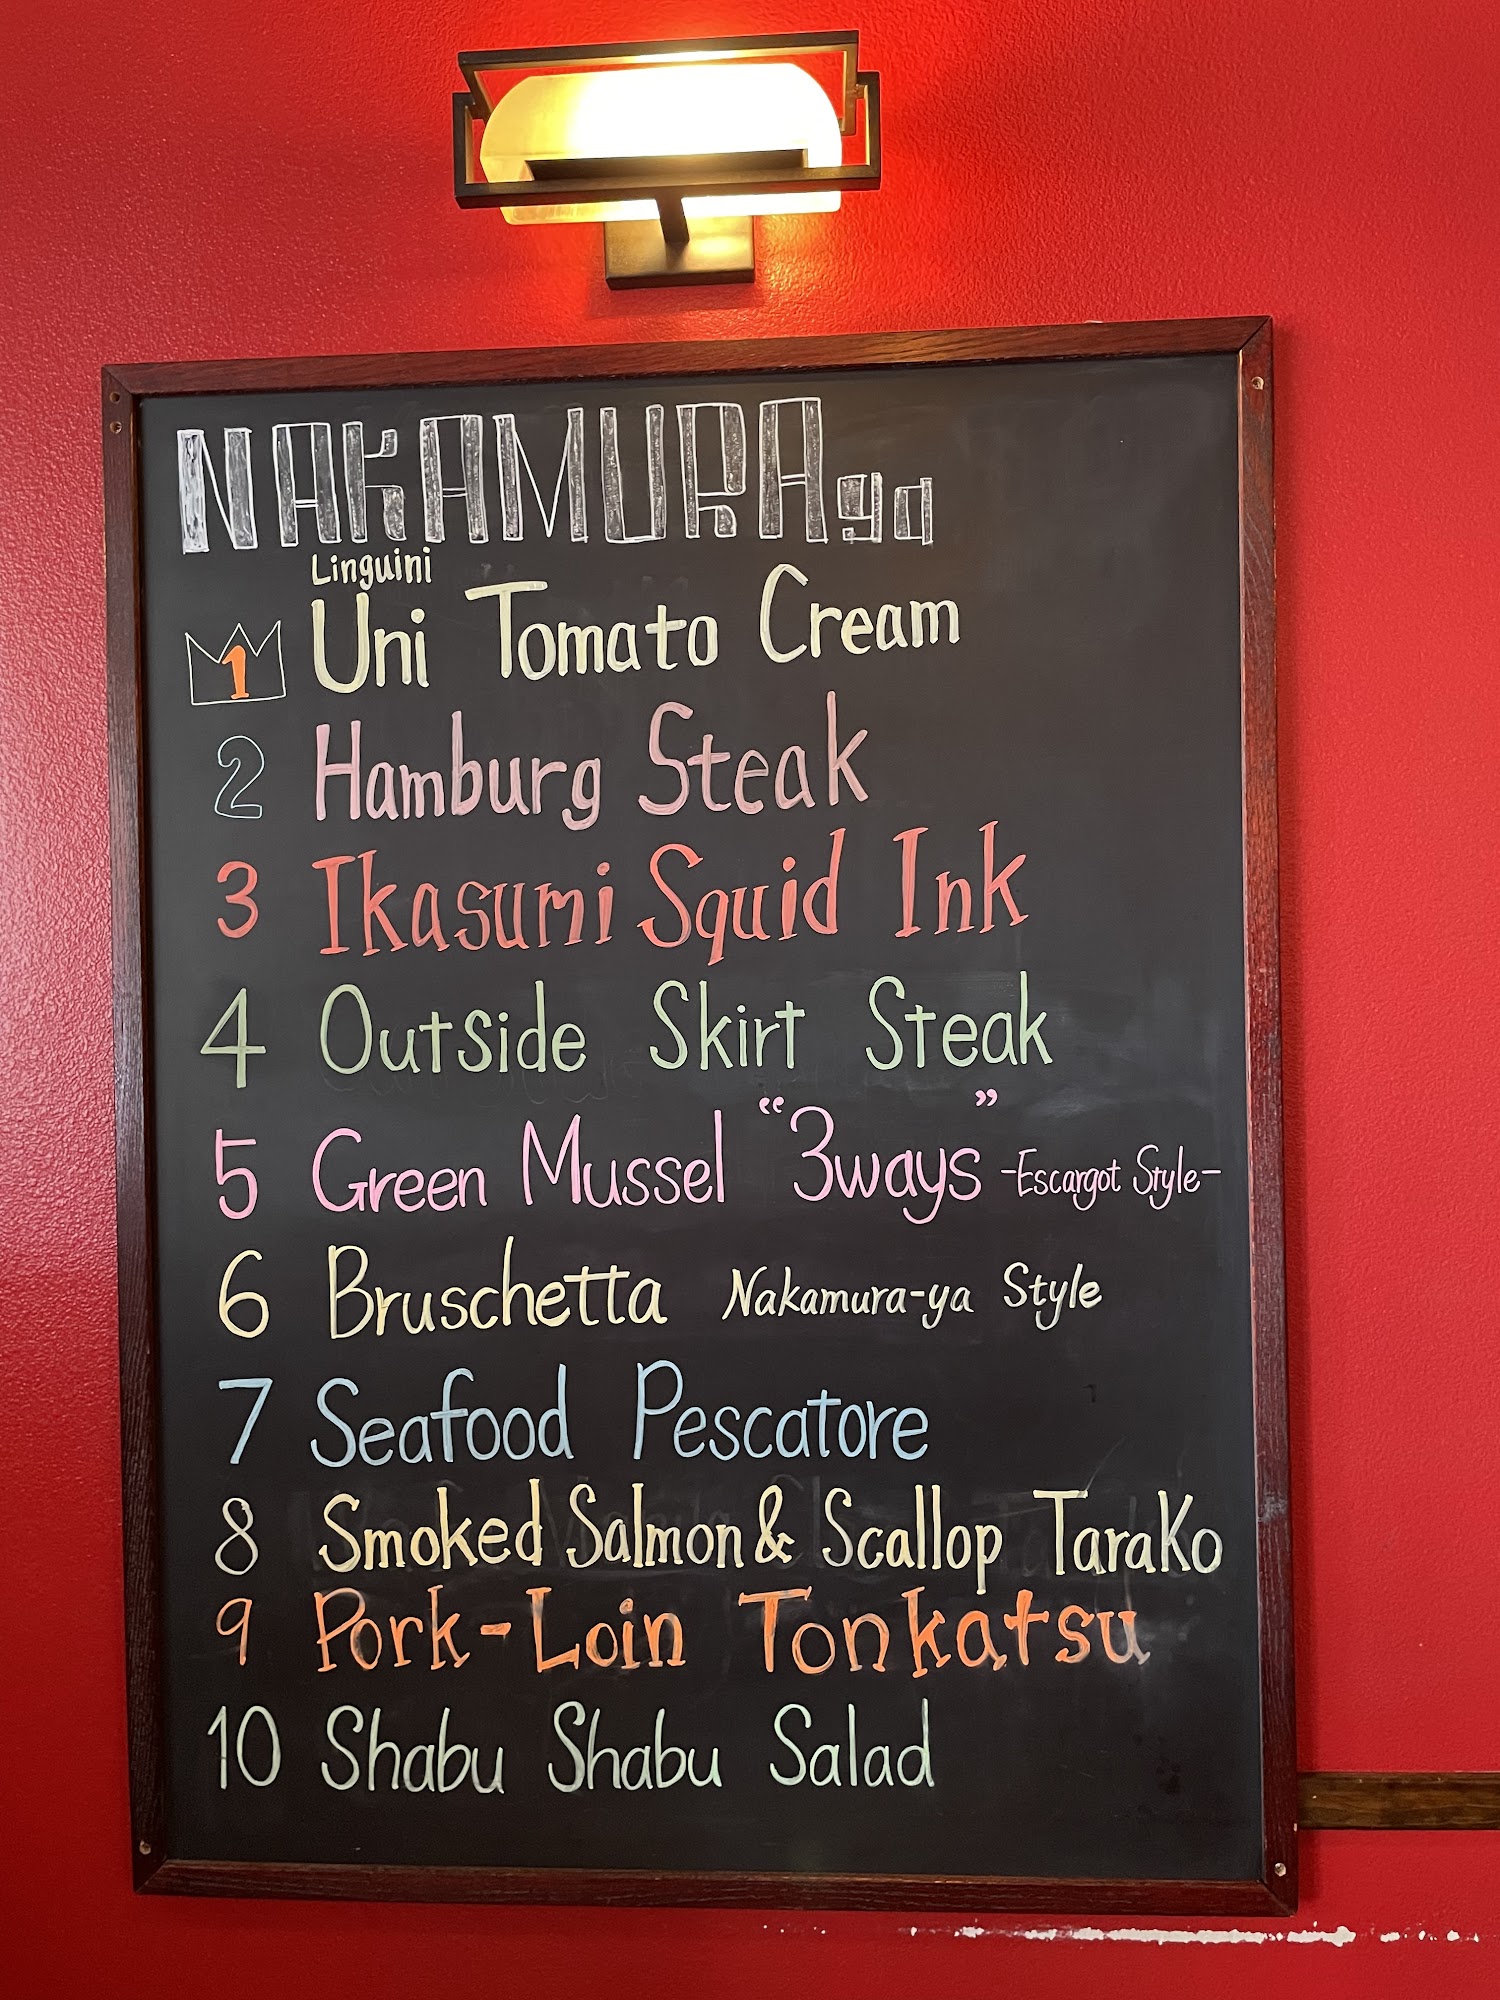 NAKAMURA ya
Linguini
1 Uni Tomato Cream
2 Hamburg Steak
3 Ikasumi Squid Ink
4 Outside Skirt Steak
5 Green Mussel "3ways" -Escargot Style-
6 Bruschetta Nakamura-ya Style
7 Seafood Pescatore
8 Smoked Salmon & Scallop TaraKo
9 Pork-Loin Tonkatsu
10 Shabu Shabu Salad